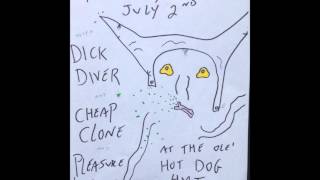 JULY 2ND
WITH
DICK
DIVER
AND
CHEAP
CLONE
AND
PLEASURE
AT THE OLE'
HOT DOG
HUT